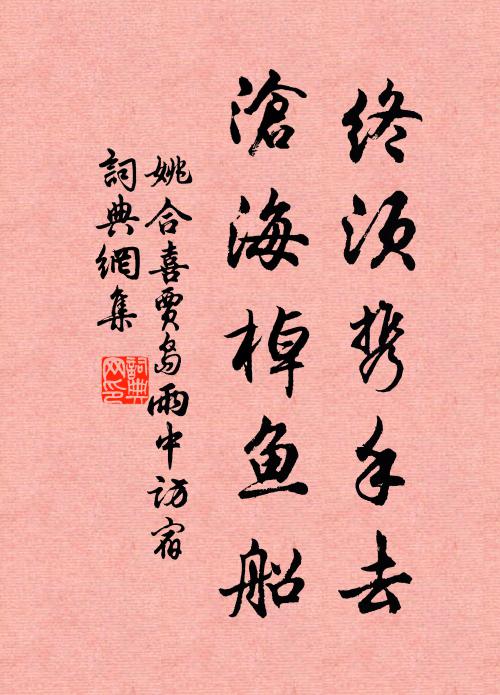 终须携手去
滄海棹鱼船
姚合喜賈岛雨中访宿
詞典網集
詞典
网印